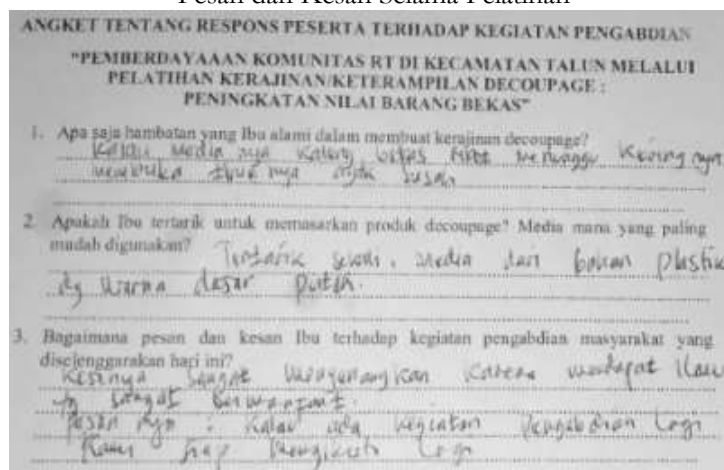 Pesan dan Kesan Selama Pelatihan
ANGKET TENTANG RESPONS PESERTA TERHADAP KEGIATAN PENGABDIAN
"PEMBERDAYAAAN KOMUNITAS RT DI KECAMATAN TALUN MELALUI
PELATIHAN KERAJINAN/KETERAMPILAN DECOUPAGE :
PENINGKATAN NILAI BARANG BEKAS"
1. Apa saja hambatan yang Ibu alami dalam membuat kerajinan decoupage?
Kalau media nya kaleng bekas menunggu keringnya
membuka nya agak susah
2. Apakah Ibu tertarik untuk memasarkan produk decoupage? Media mana yang paling
mudah digunakan? Tertarik sekali. Media dari bahan plastik
dg warna dasar putih.
3. Bagaimana pesan dan kesan Ibu terhadap kegiatan pengabdian masyarakat yang
diselenggarakan hari ini?
Kesannya sangat menyenangkan karena mendapat ilmu
yg sangat bermanfaat.
Pesan nya : Kalau ada kegiatan Pengabdian lagi
Kami siap mengikuti lagi